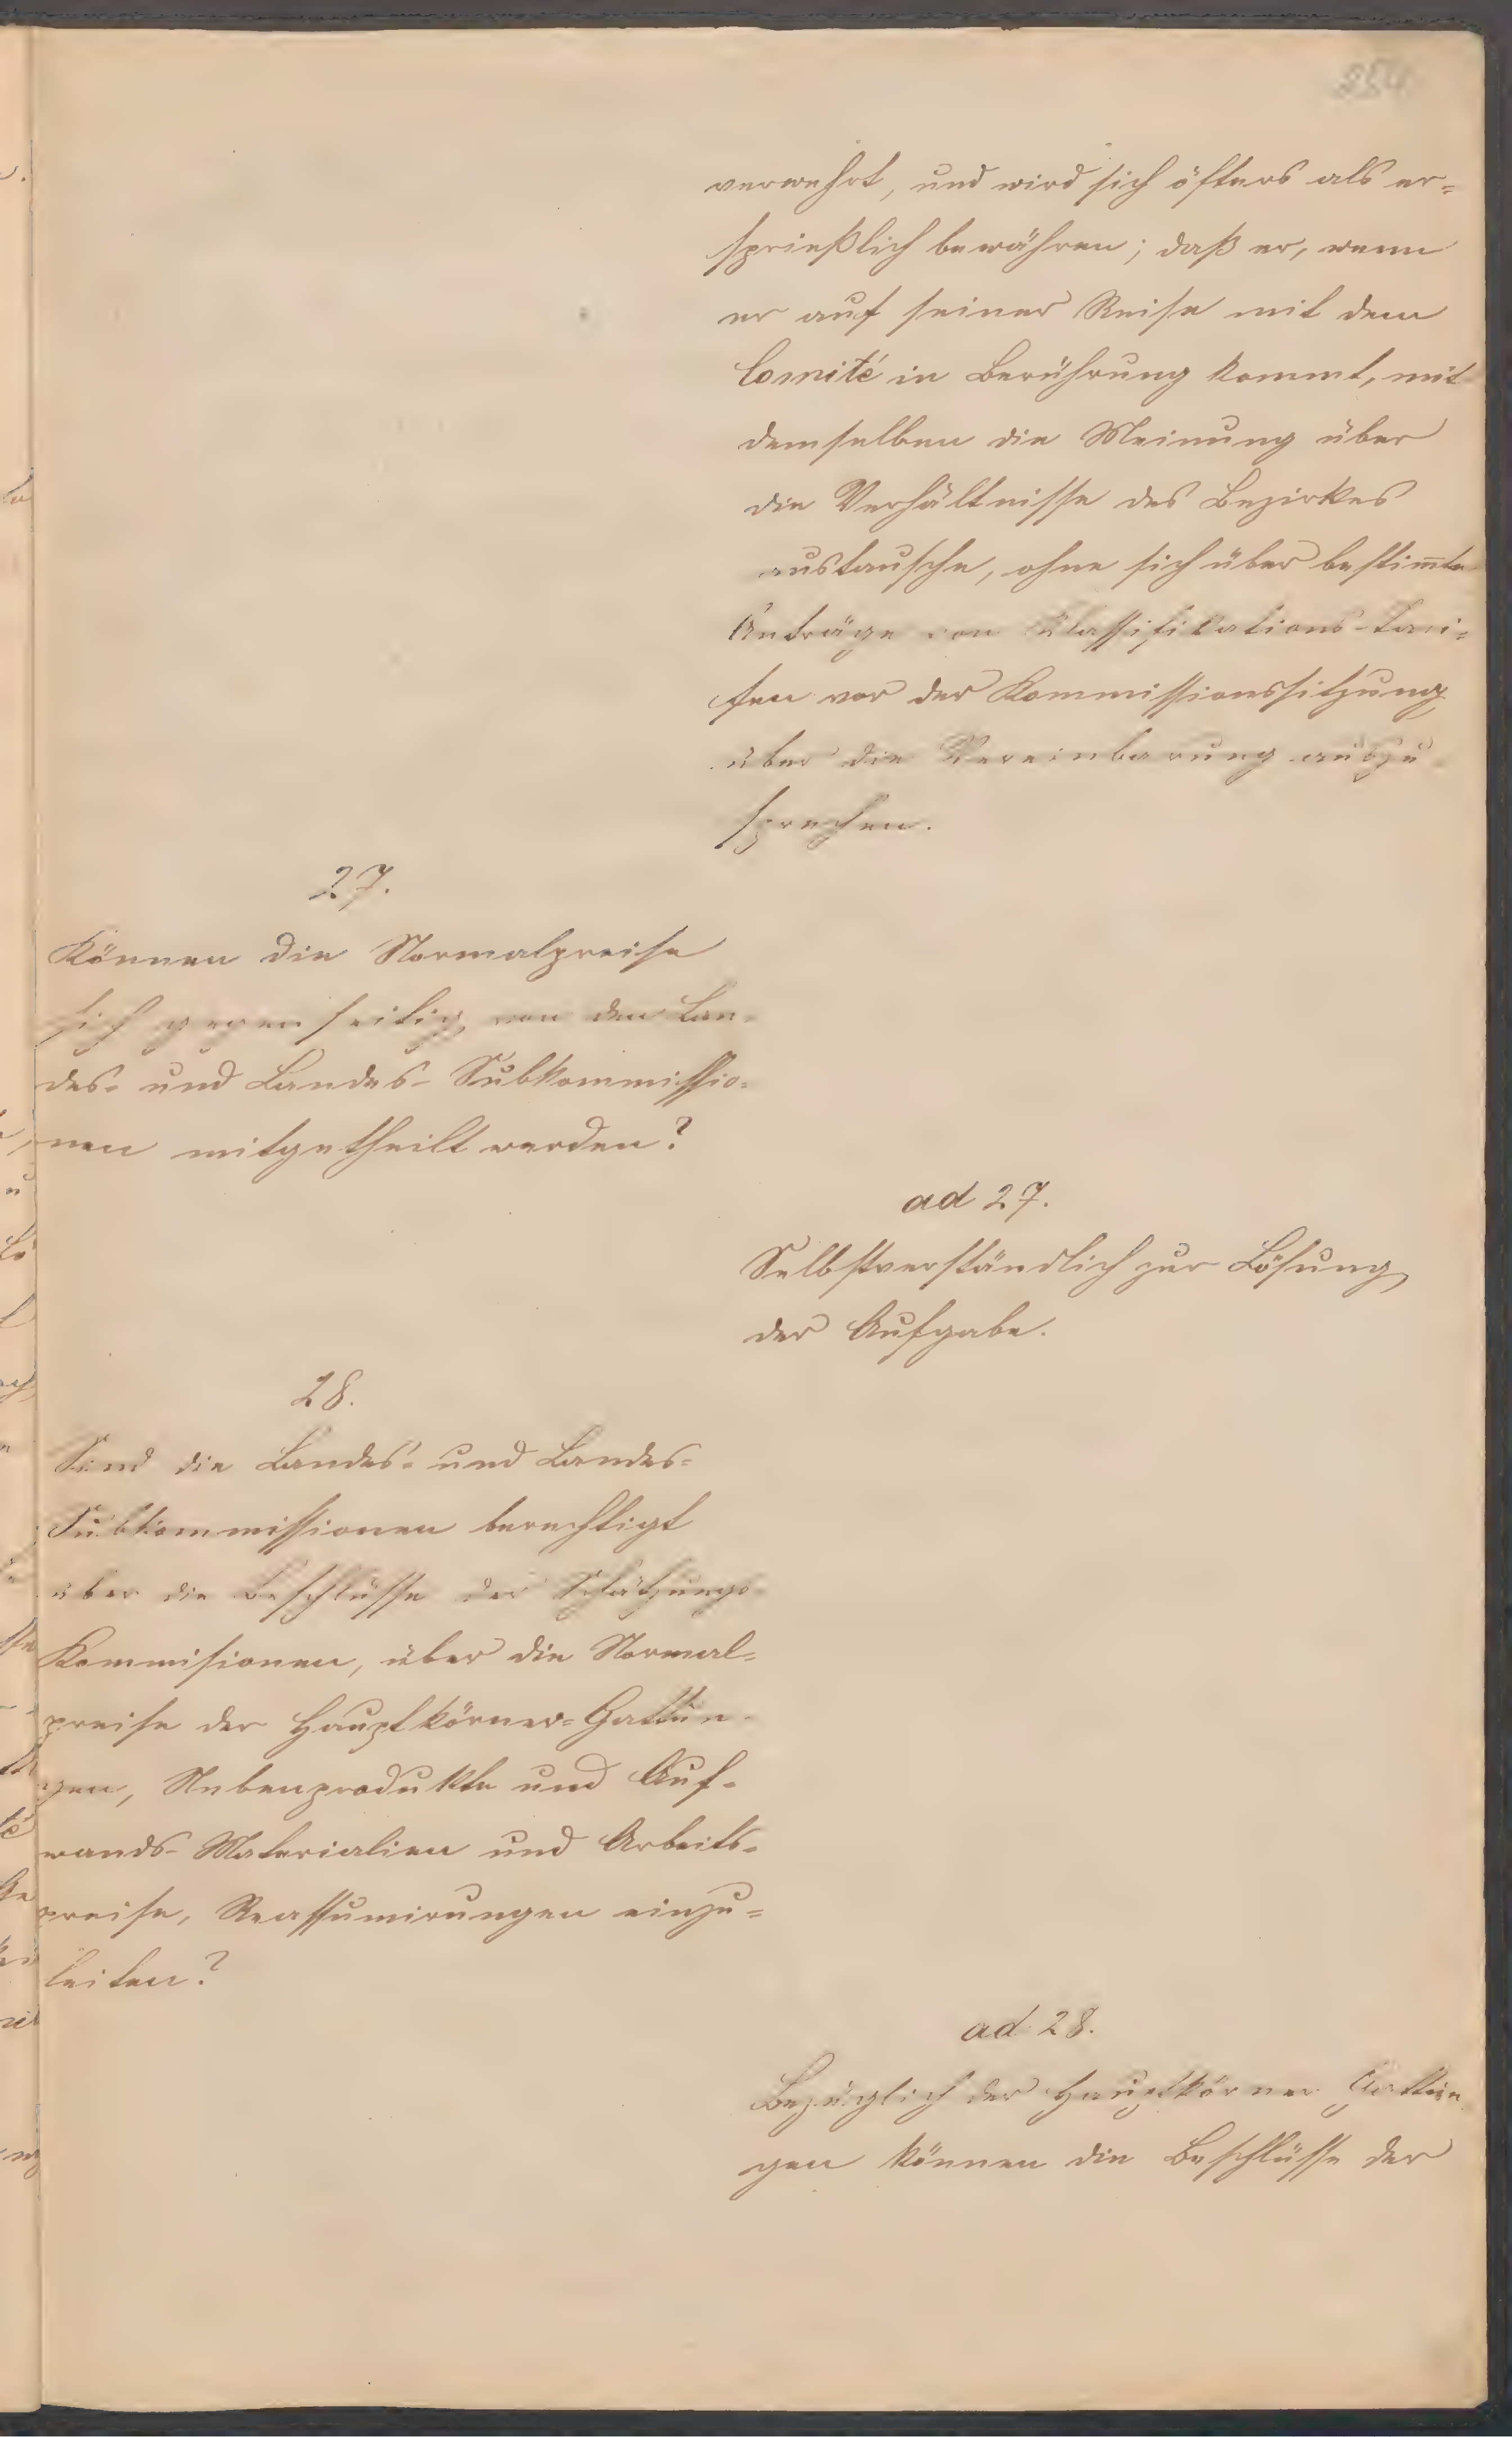 254
verwehrt, und wird sich öfters als er=
sprießlich bewähren; daß er, wenn
er auf seiner Reise mit dem
Comité in Berührung kommt, mit
demselben die Meinung über
die Verhältnisse des Bezirkes
austausche, ohne sich über bestim̅te
Anträge von Klassifikations-Tari=
fen vor der Kommissionssitzung
über die Vereinbarung auszu-
sprechen.
27.
Können die Normalpreise
sich gegenseitig von den Lan-
des- und Landes-Subkommissio=
nen mitgetheilt werden?
ad 27.
Selbstverständlich zur Lösung
der Aufgabe.
28.
Sind die Landes- und Landes=
Subkommissionen berechtigt
über die Beschlüsse der Schätzungs-
Kommisionen, über die Normal=
preise der Hauptkörner=Gattun-
gen, Nebenprodukte und Auf-
wands-Materialien und Arbeits-
preise, Reassumirungen einzu=
leiten?
ad 28.
Bezüglich der Hauptkörner Gattun
gen können die Beschlüsse der